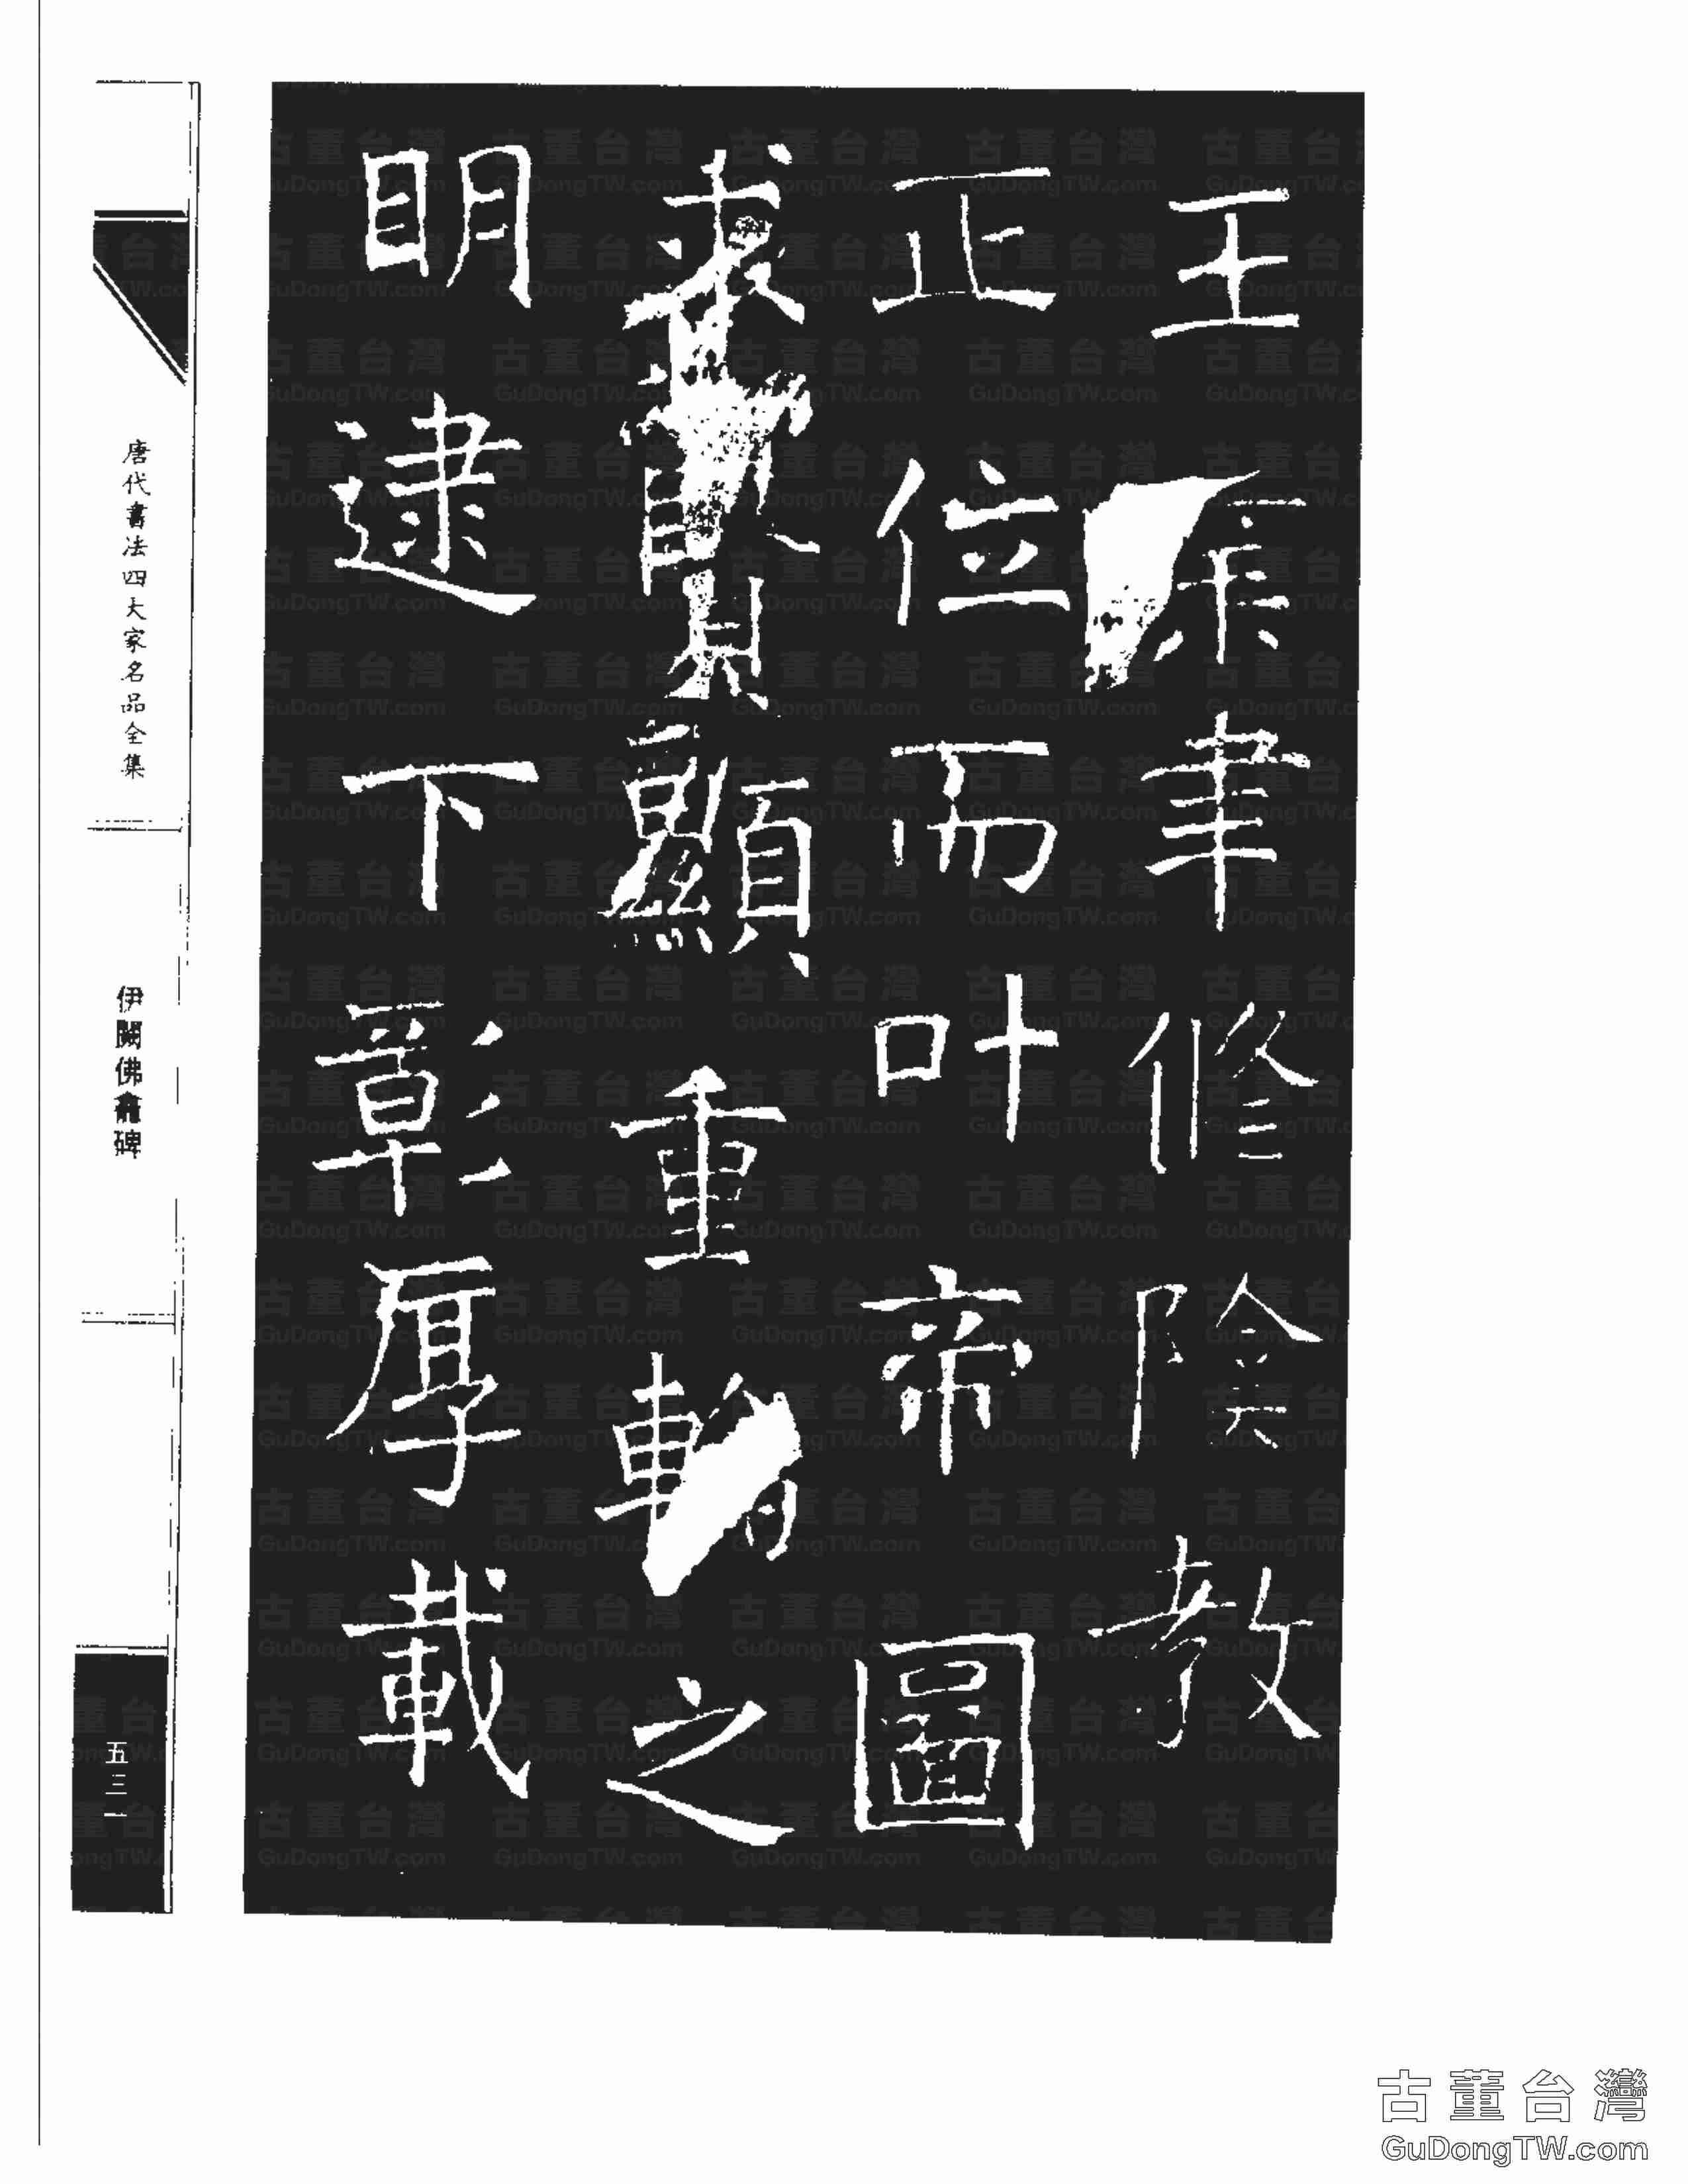 王業聿修陰教
正位而叶帝圖
求賢顯重輪之
明逮下彰厚載
唐代書法四大家名品全集
伊闕佛龕碑
五三一
古董台灣
GuDongTW.com